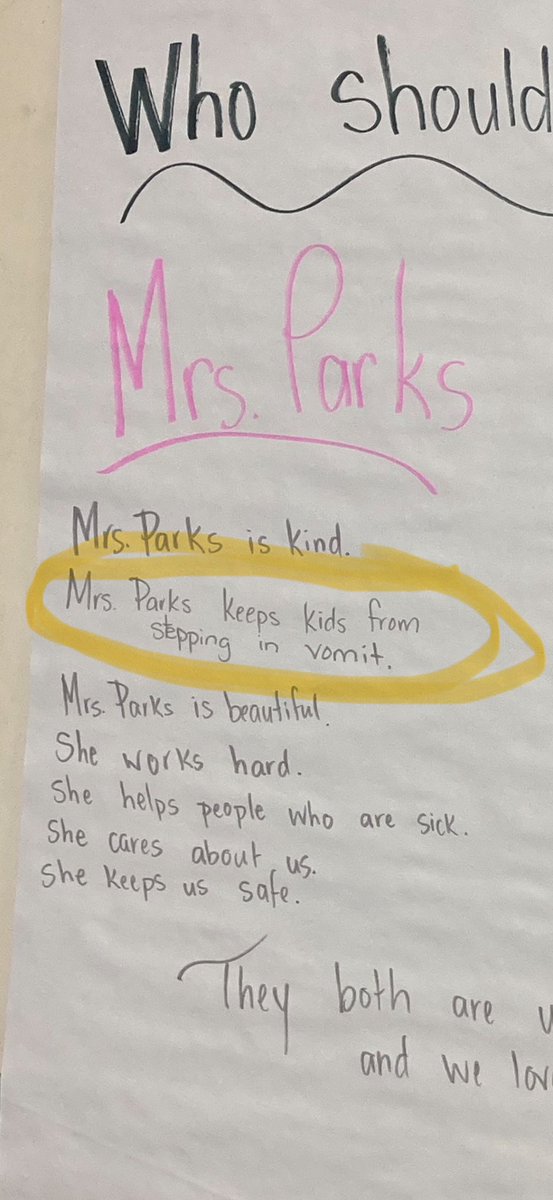 Who should
Mrs. Parks
Mrs. Parks is kind.
Mrs. Parks keeps kids from
stepping in vomit.
Mrs. Parks is beautiful.
She works hard.
She helps people who are sick.
She cares about us.
She keeps us safe.
They both are
and we